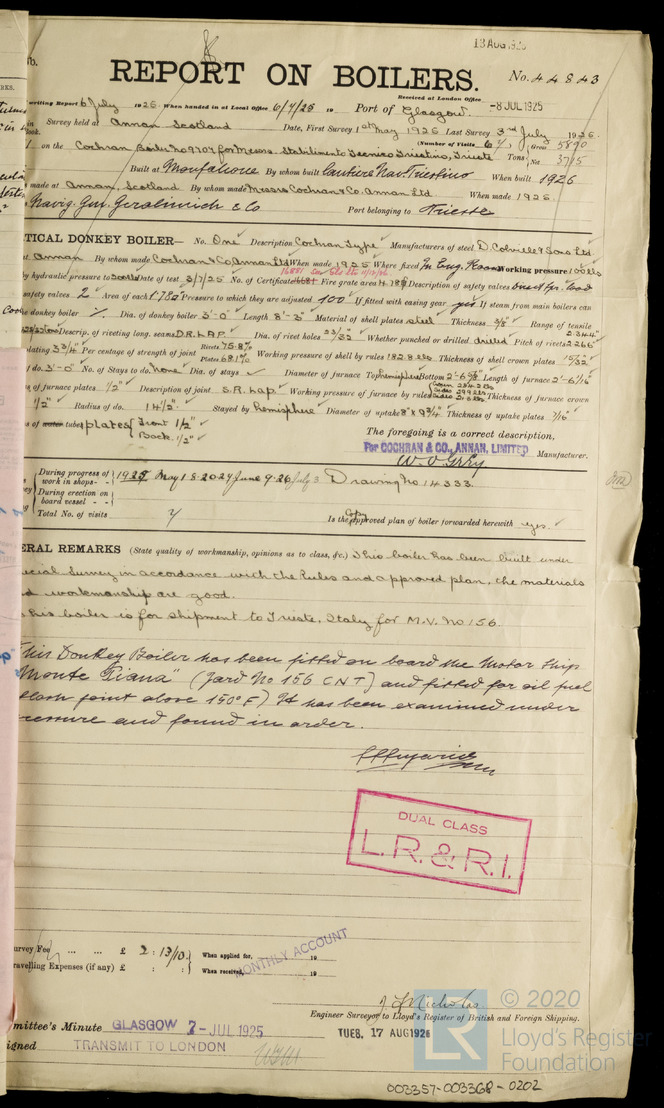 13 AUG 192
REPORT ON BOILERS.
No. 44843
Received at London Office
-8 JUL 1925
writing Report 6 July 1925 When handed in at Local Office 6/7/25 19 Port of Glasgow.
Survey held at Annan Scotland Date, First Survey 1st May 1925 Last Survey 3rd July 1925
on the Cochran Boiler No 9707 for Messrs. Stabilimento Tecnico Triestino, Trieste
(Number of Visits 67) Gross 5890
Tons Net 3715
Built at Monfalcone By whom built Cantiere Nav. Triestino When built 1926
made at Annan, Scotland By whom made Messrs Cochran & Co. Annan Ltd. When made 1925.
Navig. Gen. Gerolimich & Co Port belonging to Trieste
TICAL DONKEY BOILER— No. One Description Cochran Type Manufacturers of steel D. Colville & Sons Ltd
at Annan By whom made Cochran & Co. Annan Ltd When made 1925 Where fixed In Eng. Room Working pressure 100 lbs
by hydraulic pressure to Date of test 3/7/25 No. of Certificate 16851 Fire grate area Description of safety valves
safety valves 2 Area of each Pressure to which they are adjusted 100 If fitted with easing gear yes If steam from main boilers can
donkey boiler Dia. of donkey boiler 3'-0" Length 8'-3" Material of shell plates steel Thickness 3/8" Range of tensile
Descrip. of riveting long. seams D.R. LAP. Dia. of rivet holes 23/32" Whether punched or drilled drilled Pitch of rivets
plating 3 3/4" Per centage of strength of joint Rivets 75.8% Plates 68.1% Working pressure of shell by rules 182.8 lbs Thickness of shell crown plates 15/32"
do. 3'-0" No. of Stays to do. none Dia. of stays Diameter of furnace Top hemisphere Bottom 2'-6 5/8" Length of furnace 2'-6 1/16"
of furnace plates 1/2" Description of joint S.R. Lap. Working pressure of furnace by rules Thickness of furnace crown
1/2" Radius of do. 14 1/2" Stayed by hemisphere Diameter of uptake 8" x 9 3/4" Thickness of uptake plates 7/16"
of water tubes plates Front 1/2" Back 1/2"
The foregoing is a correct description,
For COCHRAN & CO., ANNAN, LIMITED
Manufacturer.
During progress of work in shops - - 1925 May 1.8.20.27 June 9.26 July 3 Drawing No. 14333.
During erection on board vessel - -
Total No. of visits 7 Is the approved plan of boiler forwarded herewith yes.
ERAL REMARKS (State quality of workmanship, opinions as to class, &c.) This boiler has been built under
special survey in accordance with the Rules and approved plan, the materials
workmanship are good.
this boiler is for shipment to Trieste, Italy for M.V. No 156.
This Donkey Boiler has been fitted on board the Motor Ship
"Monte Piana" (Yard No 156 CNT) and fitted for oil fuel
flash point above 150° F) It has been examined under
pressure and found in order.
DUAL CLASS
L.R. & R.I.
Survey Fee ... ... £ 2 : 13/10 When applied for, 19
Travelling Expenses (if any) £ : : When received, 19
MONTHLY ACCOUNT
Engineer Surveyor to Lloyd's Register of British and Foreign Shipping.
mmittee's Minute GLASGOW 7-JUL 1925
TUES. 17 AUG 1926
signed TRANSMIT TO LONDON
© 2020
LR
Lloyd's Register
Foundation
003357-003368-0202